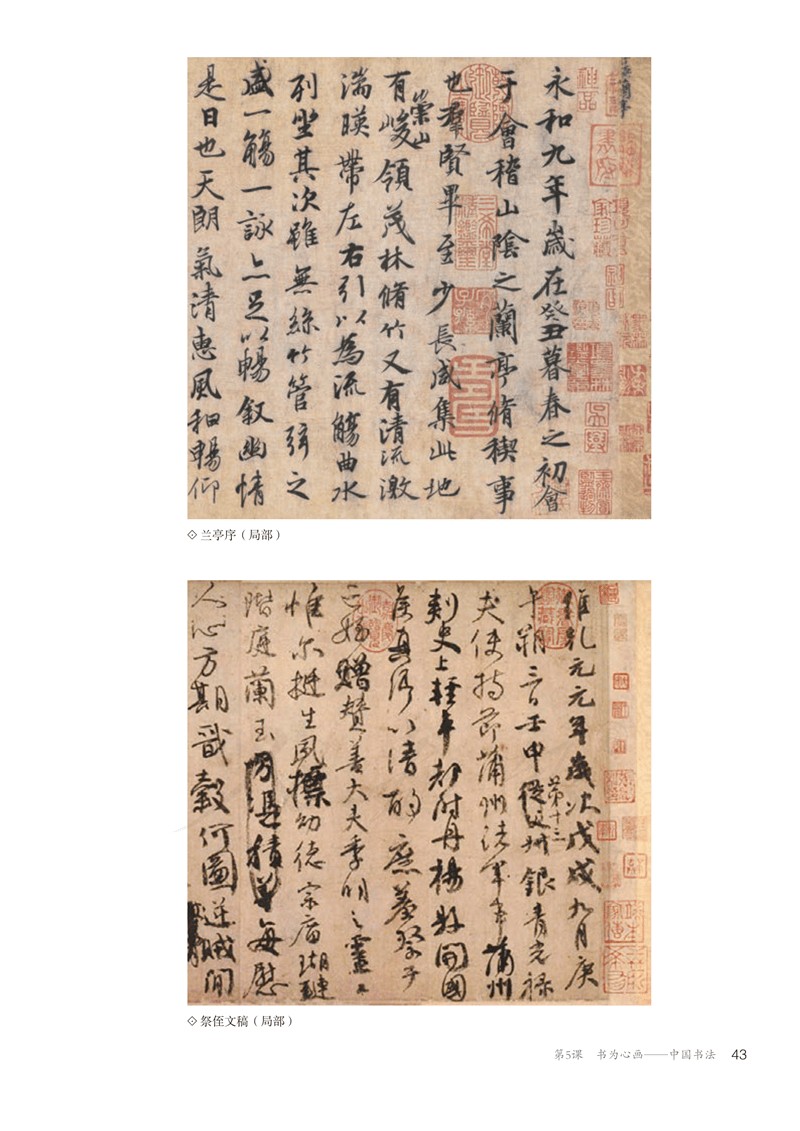 永和九年歲在癸丑暮春之初會
于會稽山陰之蘭亭脩稧事
也羣賢畢至少長咸集此地
有崇山峻領茂林脩竹又有清流激
湍暎帶左右引以為流觴曲水
列坐其次雖無絲竹管弦之
盛一觴一詠亦足以暢敘幽情
是日也天朗氣清惠風和暢仰
兰亭序（局部）
維乾元元年歲次戊戌九月庚
午朔三日壬申第十三從父銀青光禄
夫使持節蒲州諸軍事蒲州
刺史上輕車都尉丹楊縣開國
侯真卿以清酌庶羞祭于
亡姪贈贊善大夫季明之靈曰
惟爾挺生夙標幼德宗廟瑚璉
階庭蘭玉每慰
人心方期戩穀何圖逆賊閒
祭侄文稿（局部）
第5课 书为心画——中国书法 43